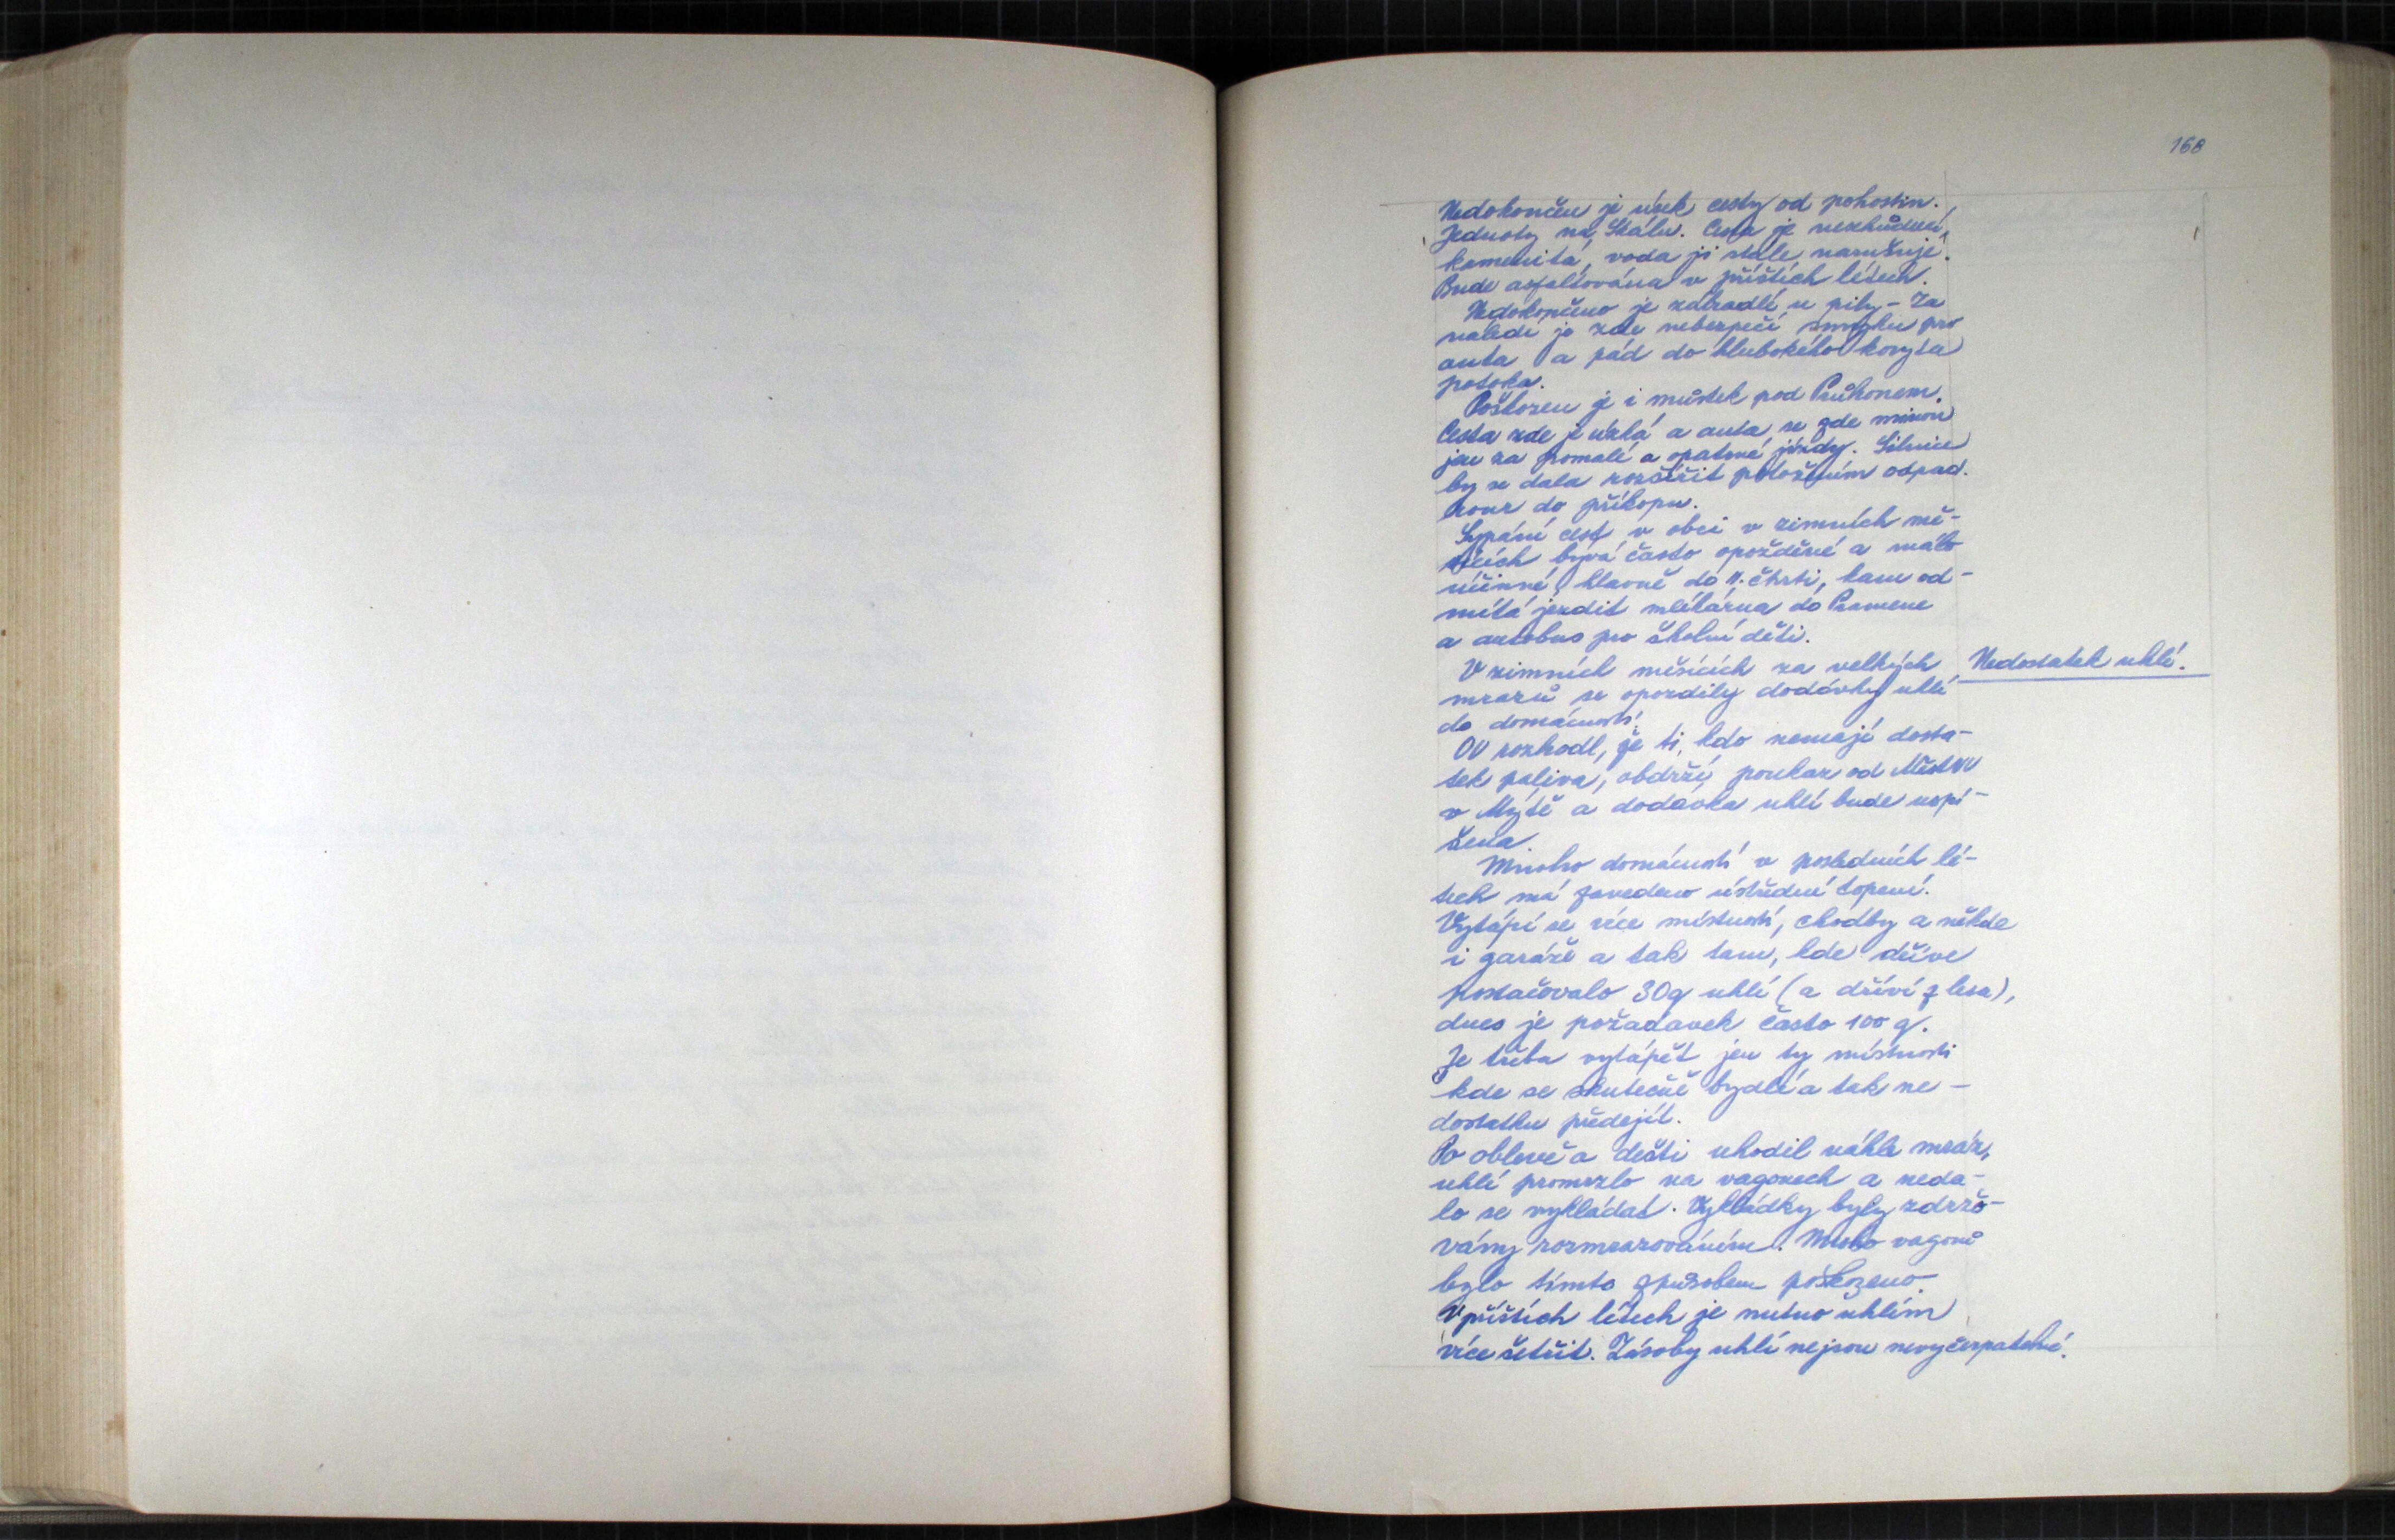 168
Nedokončen je úsek cesty od pohostin.
Jednoty na Skálu. Cesta je nezhudněn,
kamenitá, voda ji stále narušuje.
Bude asfaltována v příštích létech.
Nedokončeno je zábradlí u pily - Za
náledí je zde nebezpečí smyku pro
auta a pád do hlubokého koryta
potoka.
Poškozen je i můstek pod Průhonem.
Cesta zde je úzká a auta se zde minou
jen za pomalé a opatrné jízdy. Silnice
by se dala rozšířit položením odpad.
rour do příkopu.
Sypání cest v obci v zimních mě-
sících bývá často opožděné a málo
účinné, hlavně do II. čtvrti, kam od-
mítá jezdit mlékárna do Pramene
a autobus pro školní děti.
V zimních měsících za velkých
mrazů se opozdily dodávky uhlí
do domácností.
Nedostatek uhlí.
OV rozhodl, že ti, kdo nemají dosta-
tek paliva, obdrží poukaz od MěstNV
v Mýtě a dodávka uhlí bude uspí-
šena.
Mnoho domácností v posledních lé-
tech má zavedeno ústřední topení.
Vytápí se více místností, chodby a někde
i garáže a tak tam, kde dříve
postačovalo 30q uhlí (a dříví z lesa),
dnes je požadavek často 100 q.
Je třeba vytápět jen ty místnosti
kde se skutečně bydlí a tak ne-
dostatku předejít.
Po oblevě a dešti uhodil náhle mráz,
uhlí promrzlo na vagonech a neda-
lo se vykládat. Vykládky byly zdržo-
vány rozmrazováním. Mnoho vagonů
bylo tímto způsobem poškozeno.
V příštích létech je nutno uhlím
více šetřit. Zásoby uhlí nejsou nevyčerpatelné.